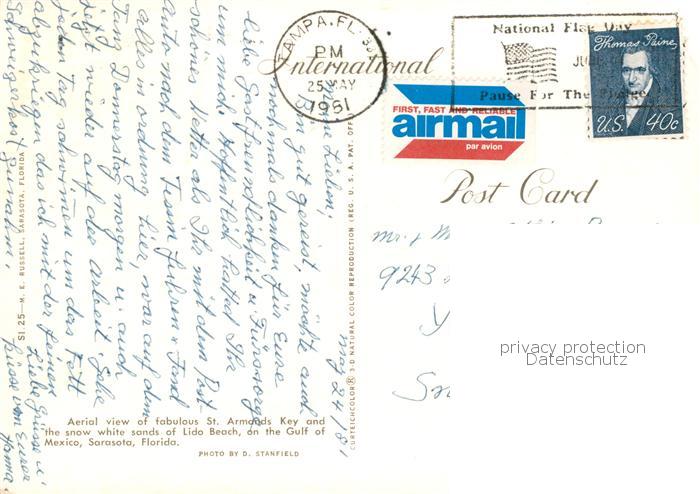 TAMPA, FL
PM
25 MAY
1981
National Flag Day
Pause For The Pledge
Thomas Paine
U.S. 40c
International
FIRST, FAST AND RELIABLE
airmail
par avion
Post Card
may 24/81
Liebe Lieben,
Bin gut gereist, möchte auch
nochmals danken für Eure
liebe Gastfreundlichkeit u. Fürsorge
um mich. Hoffentlich hattet Ihr
schönes Wetter als Ihr mit dem Post-
auto nach dem Tessin fuhren. Fand
alles in Ordnung hier, war auf dem
Donnerstag morgen u. auch
jetzt wieder auf der Arbeit. Gehe
jeden Tag schwimmen um das Fett
abzukriegen das ich mit der feinen
Schweizer Kost
Liebe Grüsse u.
Küsse von Eurer
Mr. & M
9243
Aerial view of fabulous St. Armonds Key and
the snow white sands of Lido Beach, on the Gulf of
Mexico, Sarasota, Florida.
PHOTO BY D. STANFIELD
SI.25—M. E. RUSSELL, SARASOTA, FLORIDA
CURTEICHCOLOR® 3-D NATURAL COLOR REPRODUCTION (REG. U.S.A. PAT. OFF.)
privacy protection
Datenschutz